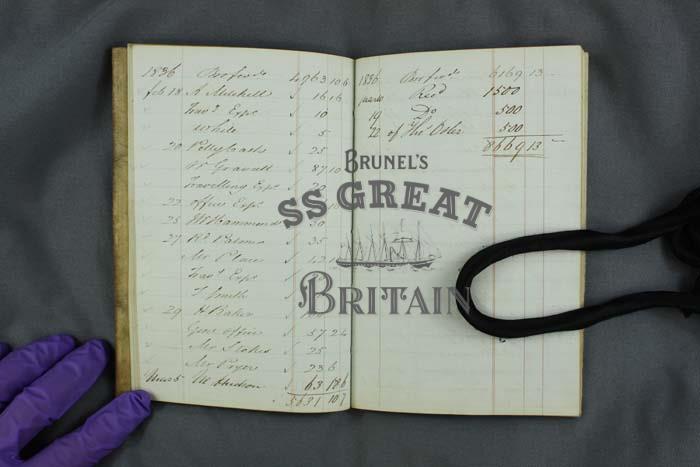 1836 Bro forwd 4963 10 6
Feb 18 A Mitchell 16 16
Travg Exps 10
White 5
20 Petty Cash 25
W Gravatt 87 10
Travelling Exps 20
22 office Exps
25 W Hammond 20
27 Wm Patons 35
Mr Place 12
Travg Exps
T Smith
29 H Baker
Genl office 57 2 4
Mr Stokes 25
Mr Pryer 23 6
Mar 5 Mr Hudson 63 18 6
5631 10 7
1836 Bro forwd 6169 13 —
Recd 1500
19 Do 500
22 of Thos Osler 500
8669 13 —
BRUNEL'S
SS GREAT
BRITAIN